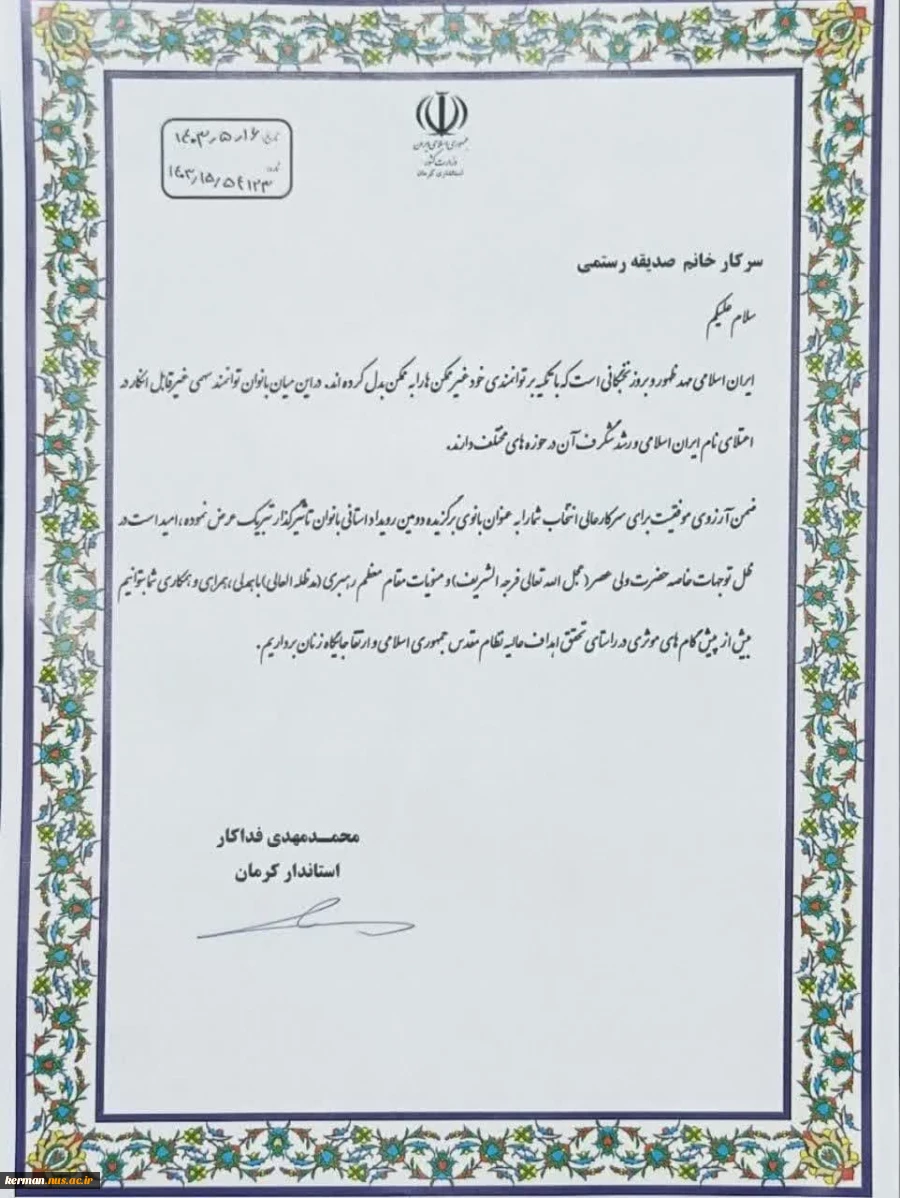 جمهوری اسلامی ایران
وزارت کشور
استانداری کرمان
تاریخ: ۱۴۰۳٫۵٫۱۶
شماره: ۱۴۰۳/۱۵/۵۴۱۲۳
سرکار خانم صدیقه رستمی
سلام علیکم
ایران اسلامی مهد ظهور و بروز نخبگانی است که با تکیه بر توانمندی خود غیرممکن ها را به ممکن بدل کرده اند. در این میان بانوان توانمند سهمی غیرقابل انکار در
اعتلای نام ایران اسلامی و رشد شگرف آن در حوزه های مختلف دارند.
ضمن آرزوی موفقیت برای سرکارعالی انتخاب شما را به عنوان بانوی برگزیده دومین رویداد استانی بانوان تاثیرگذار تبریک عرض نموده، امید است در
ظل توجهات خاصه حضرت ولی عصر (عجل الله تعالی فرجه الشریف) و منویات مقام معظم رهبری (مدظله العالی) با همدلی، همراهی و همکاری شما بتوانیم
بیش از پیش گام های موثری در راستای تحقق اهداف عالیه نظام مقدس جمهوری اسلامی و ارتقا جایگاه زنان برداریم.
محمدمهدی فداکار
استاندار کرمان
kerman.nus.ac.ir